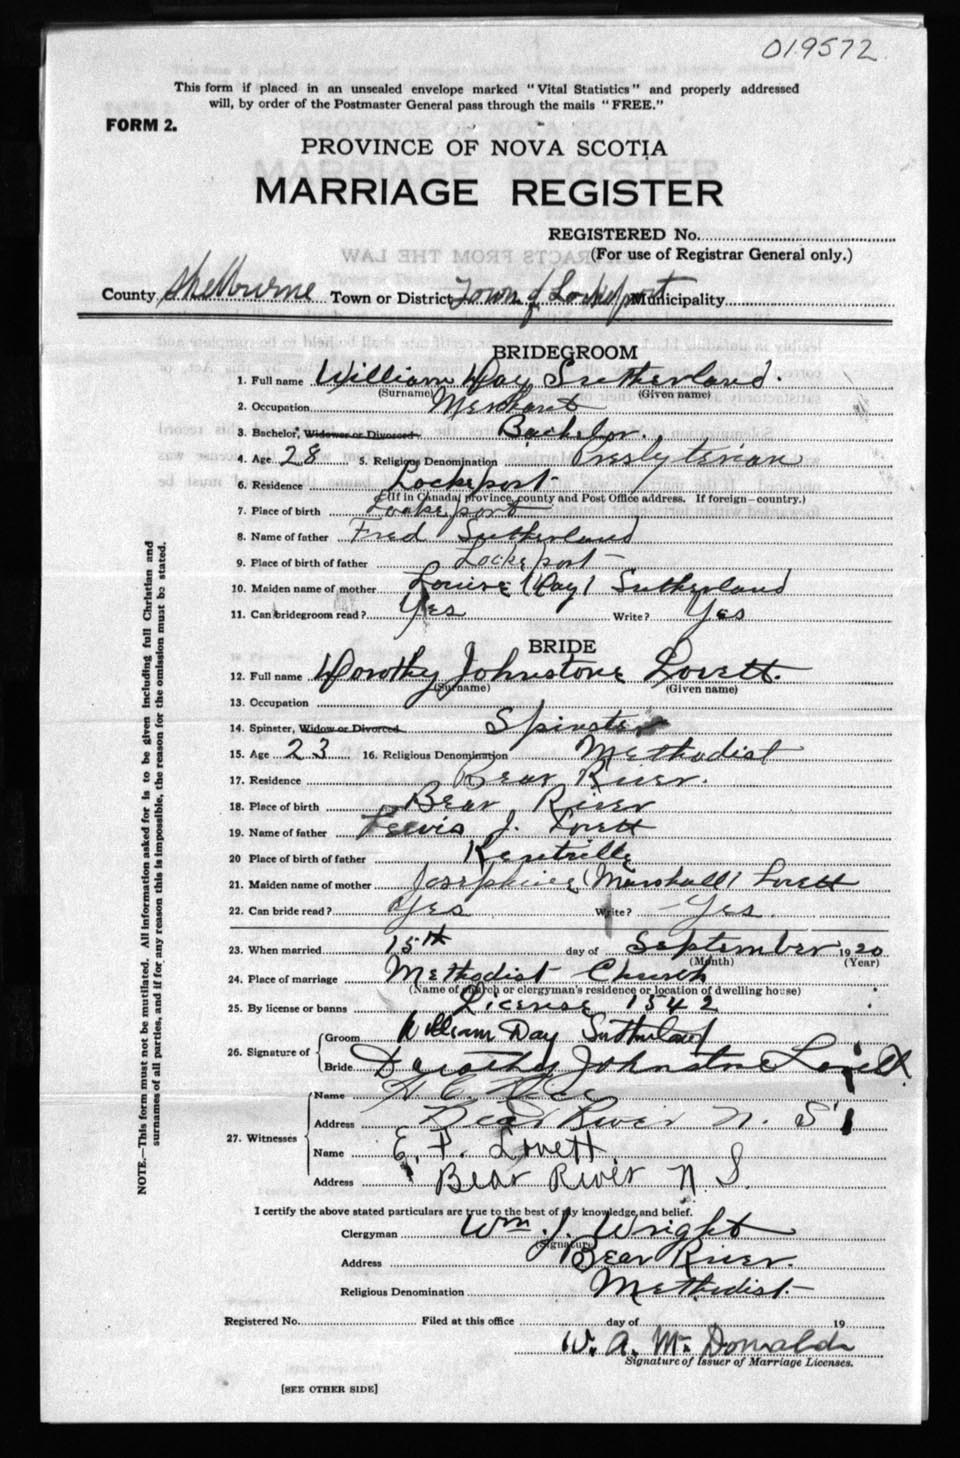 019572
This form if placed in an unsealed envelope marked "Vital Statistics" and properly addressed
will, by order of the Postmaster General pass through the mails "FREE."
FORM 2.
PROVINCE OF NOVA SCOTIA
MARRIAGE REGISTER
REGISTERED No.
(For use of Registrar General only.)
County Shelburne Town or District Town of Lockeport Municipality
BRIDEGROOM
1. Full name William Day Sutherland.
(Surname) (Given name)
2. Occupation Merchant
3. Bachelor, Widower or Divorced Bachelor.
4. Age 28 5. Religious Denomination Presbyterian
6. Residence Lockeport
(If in Canada, province, county and Post Office address. If foreign—country.)
7. Place of birth Lockeport
8. Name of father Fred Sutherland
9. Place of birth of father Lockeport
10. Maiden name of mother Louise (Day) Sutherland
11. Can bridegroom read? Yes Write? Yes
BRIDE
12. Full name Dorothy Johnstone Lovett.
(Surname) (Given name)
13. Occupation
14. Spinster, Widow or Divorced Spinster
15. Age 23 16. Religious Denomination Methodist
17. Residence Bear River.
18. Place of birth Bear River
19. Name of father J. Lovett
20 Place of birth of father Kentville
21. Maiden name of mother Josephine (Marshall) Lovett
22. Can bride read? Yes Write? Yes.
23. When married 15th day of September 1920
(Month) (Year)
24. Place of marriage Methodist Church
(Name of church or clergyman's residence or location of dwelling house)
25. By license or banns License 1542
26. Signature of Groom William Day Sutherland
Bride Dorothy Johnstone Lovett.
27. Witnesses
Name
Address Bear River N. S.
Name E. P. Lovett.
Address Bear River N. S.
I certify the above stated particulars are true to the best of my knowledge and belief.
Clergyman Wm. J. Wright
(Signature)
Address Bear River.
Religious Denomination Methodist.
Registered No. Filed at this office day of 19
W. A. McDonald
Signature of Issuer of Marriage Licenses.
[SEE OTHER SIDE]
NOTE.—This form must not be mutilated. All information asked for is to be given including full Christian and
surnames of all parties, and if for any reason this is impossible, the reason for the omission must be stated.